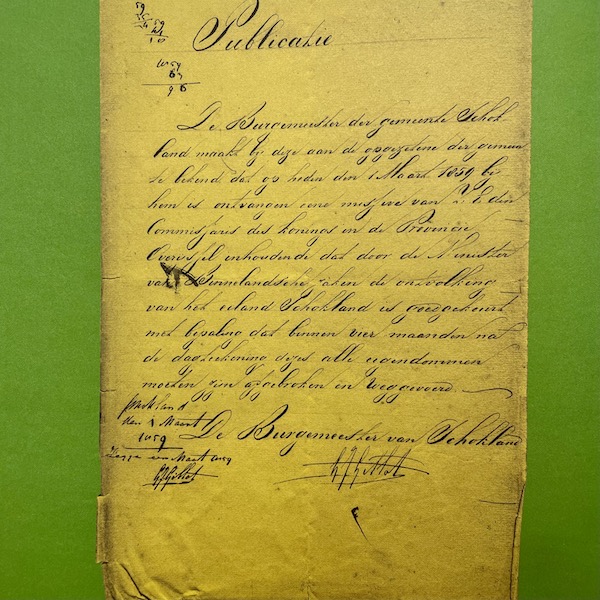 59
Publicatie
1859
De Burgemeester der gemeente Schok-
land maakt bij deze aan de opgezetene der gemeen
te bekend dat op heden den 1 Maart 1859 bij
hem is ontvangen eene missive van Z. E. den
Commissaris des Konings in de Provincie
Overijssel inhoudende dat door de Minister
van Binnenlandsche zaken de ontvolking
van het eiland Schokland is goedgekeurd
met bepaling dat binnen vier maanden na
de dagteekening dezes alle eigendommen
moeten zijn afgebroken en weggevoerd.
Schokland
den 1 Maart
1859
De Burgemeester van Schokland
een Maart 1859
G J Gillot
GJGillot